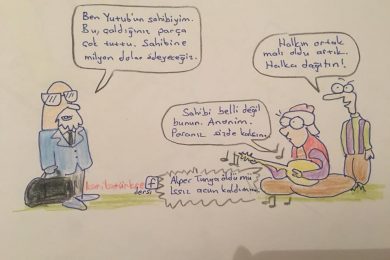 Ben Yutub'un sahibiyim.
Bu, çaldığınız parça
çok tuttu. Sahibine
milyon dolar ödeyeceğiz.
Halkın ortak
malı oldu artık.
Halka dağıtın!
Sahibi belli değil
bunun. Anonim.
Paranız sizde kalsın.
Alper Tunga öldü mü
Issız acun kaldı mı
dersi